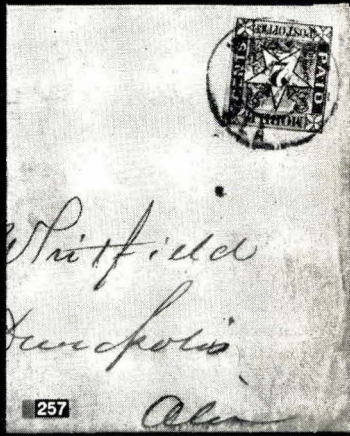 POST OFFICE
PAID
2
MOBILE
Whitfield
Demopolis
Ala
257